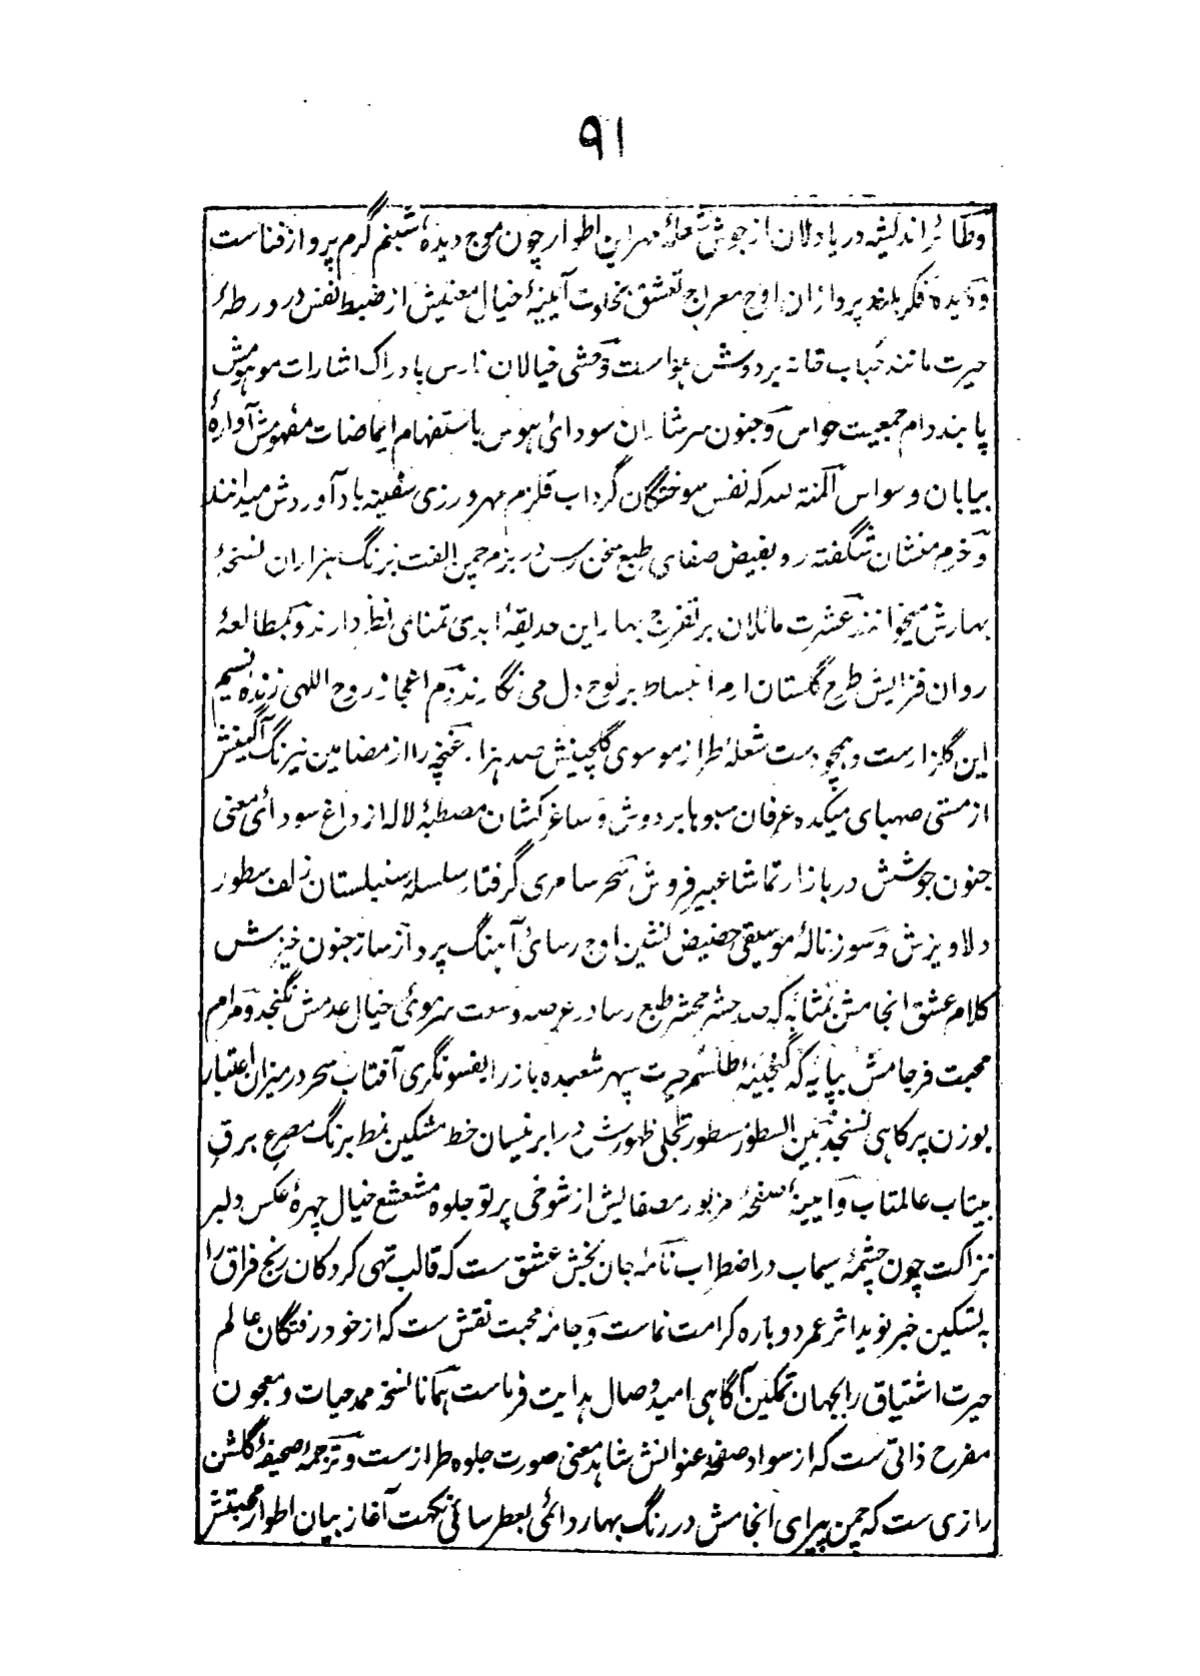 ۹۱
وطائر اندیشه دریادلان از جوش شعلهٔ مهر این اطوار چون موج دیدهٔ شبنم گرم پرواز فناست
و دیده فکر بلند پروازان اوج معراج تعشق بخلوت آیینهٔ خیال معنیش از ضبط نفس در ورطهٔ
حیرت مانند حباب خانه بردوش هواست وحشی خیالان نارس بادراک اشارات موهومش
پابند دام جمعیت حواس و جنون سرشاران سودای هوس باستفهام ایماضات مفهومش آوارهٔ
بیابان وسواس که نفس سوختگان گرداب قلزم مهرورزی سفینه بادآوردش میدانند
و خرم منشان شگفته رو بفیض صفای طبع سخن رس در بزم چمن الفت برنگ هزاران نسخهٔ
بهارش میخوانند عشرت مائلان بر تفرج بهار این حدیقهٔ ابدی تمنای نظر دارند و بمطالعهٔ
روان فزایش طرح گلستان ارم انبساط بر لوح دل می نگارند دم اعجاز روح اللهی زنده نسیم
این گلزارست و همچو دست شعلهٔ طراز موسوی گلچینش صد هزار غنچه را از مضامین نیرنگ آگینش
از مستی صهبای میکده عرفان سبوها بردوش و ساغر کشان مصطبهٔ لاله از داغ سودای معنی
جنون جوشش در بازار تماشا عبیر فروش سحر سامری گرفتار سلسلهٔ سنبلستان زلف سطور
دلاویزش و سوز نالهٔ موسیقی حضیض نشین اوج رسائ آهنگ پرداز ساز جنون خیزش
کلام عشق انجامش بمثابه که صد حشر محشر طبع رسا در عرصه وسعت سرموئی خیال عدمش نگنجد و مرام
محبت فرجامش بپایه که گنجینهٔ طلسم حیرت سپهر شعبده باز را بفسونگری آفتاب سحر در میزان اعتبار
بوزن پرکاهی نسنجد بین السطور سطور تجلی ظهورش در ابر نیسان خط مشکین نمط برنگ مصرع برق
بیتاب عالمتاب و آیینهٔ صفحهٔ مزبور مصفایش از شوخی پرتو جلوه مشعشع خیال چهرهٔ عکس دلبر
نزاکت چون چشمهٔ سیماب در اضطراب نامه جان بخش عشق ست که قالب تهی کردکان رنج فراق را
به تسکین خبر نوید اثر عمر دوباره کرامت نماست و جامه محبت نقش ست که از خود رفتگان عالم
حیرت اشتیاق را بجهان تمکین آگاهی امید وصال هدایت فرماست همانا نسخهٔ ممد حیات و معجون
مفرح ذاتی ست که از سواد صفحهٔ عنوانش شاهد معنی صورت جلوه طرازست و ترجمهٔ صحیفهٔ گلشن
رازی ست که چمن پیرای انجامش در رنگ بهار دائمی بعطر سائی نکهت آغاز بیان اطوار محبتش